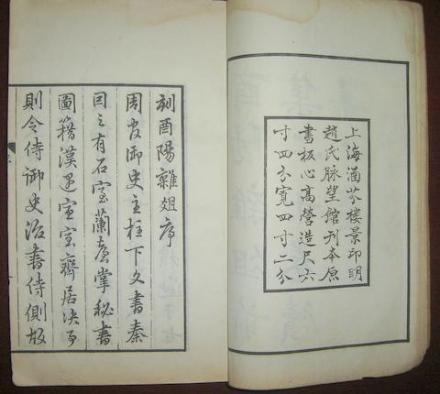 上海涵芬樓景印明
趙氏脉望館刊本原
書板心高營造尺六
寸四分寬四寸二分
刻酉陽雜俎序
周官御史主柱下文書秦
因之有石室蘭臺掌秘書
圖籍漢宣室齋居決事
則令侍御史治書侍側